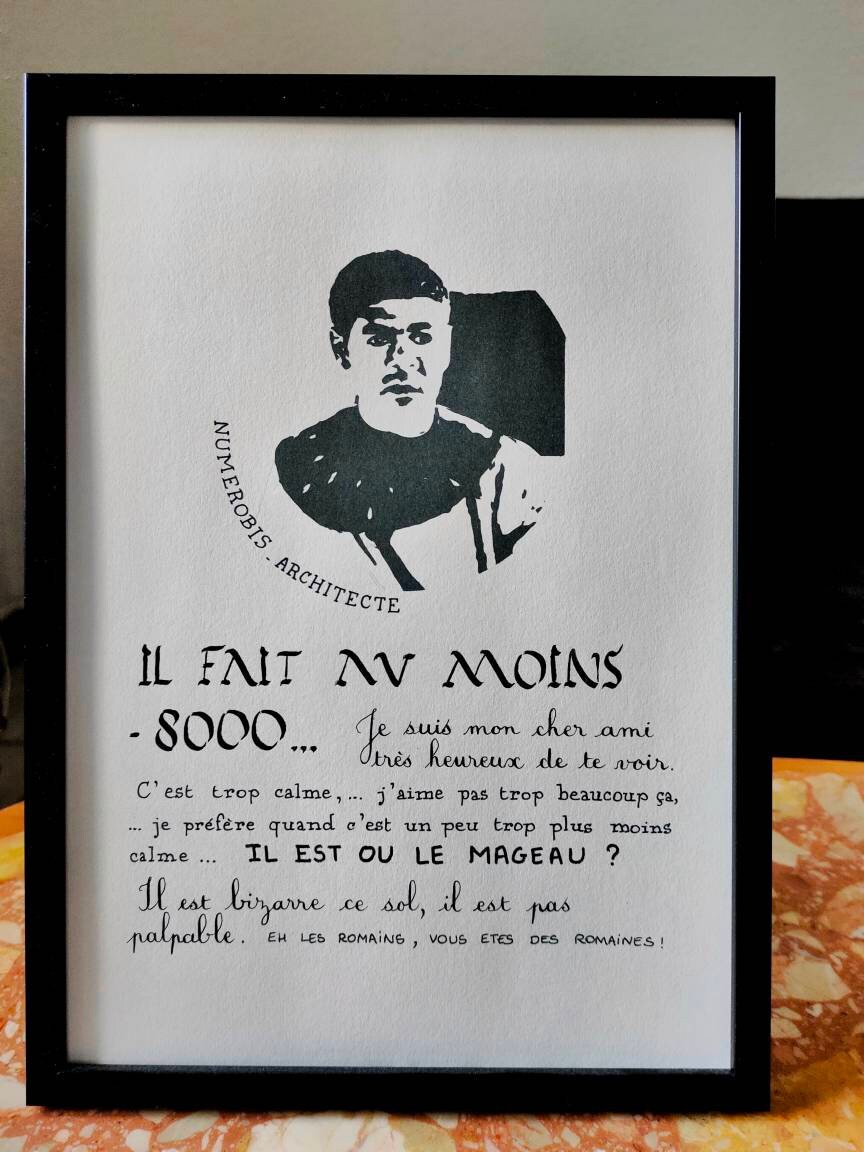 NUMEROBIS . ARCHITECTE
IL FAIT AU MOINS
- 8000... Je suis mon cher ami
très heureux de te voir.
C'est trop calme, ... j'aime pas trop beaucoup ça,
... je préfère quand c'est un peu trop plus moins
calme ... IL EST OU LE MAGEAU ?
Il est bizarre ce sol, il est pas
palpable. EH LES ROMAINS, VOUS ETES DES ROMAINES !